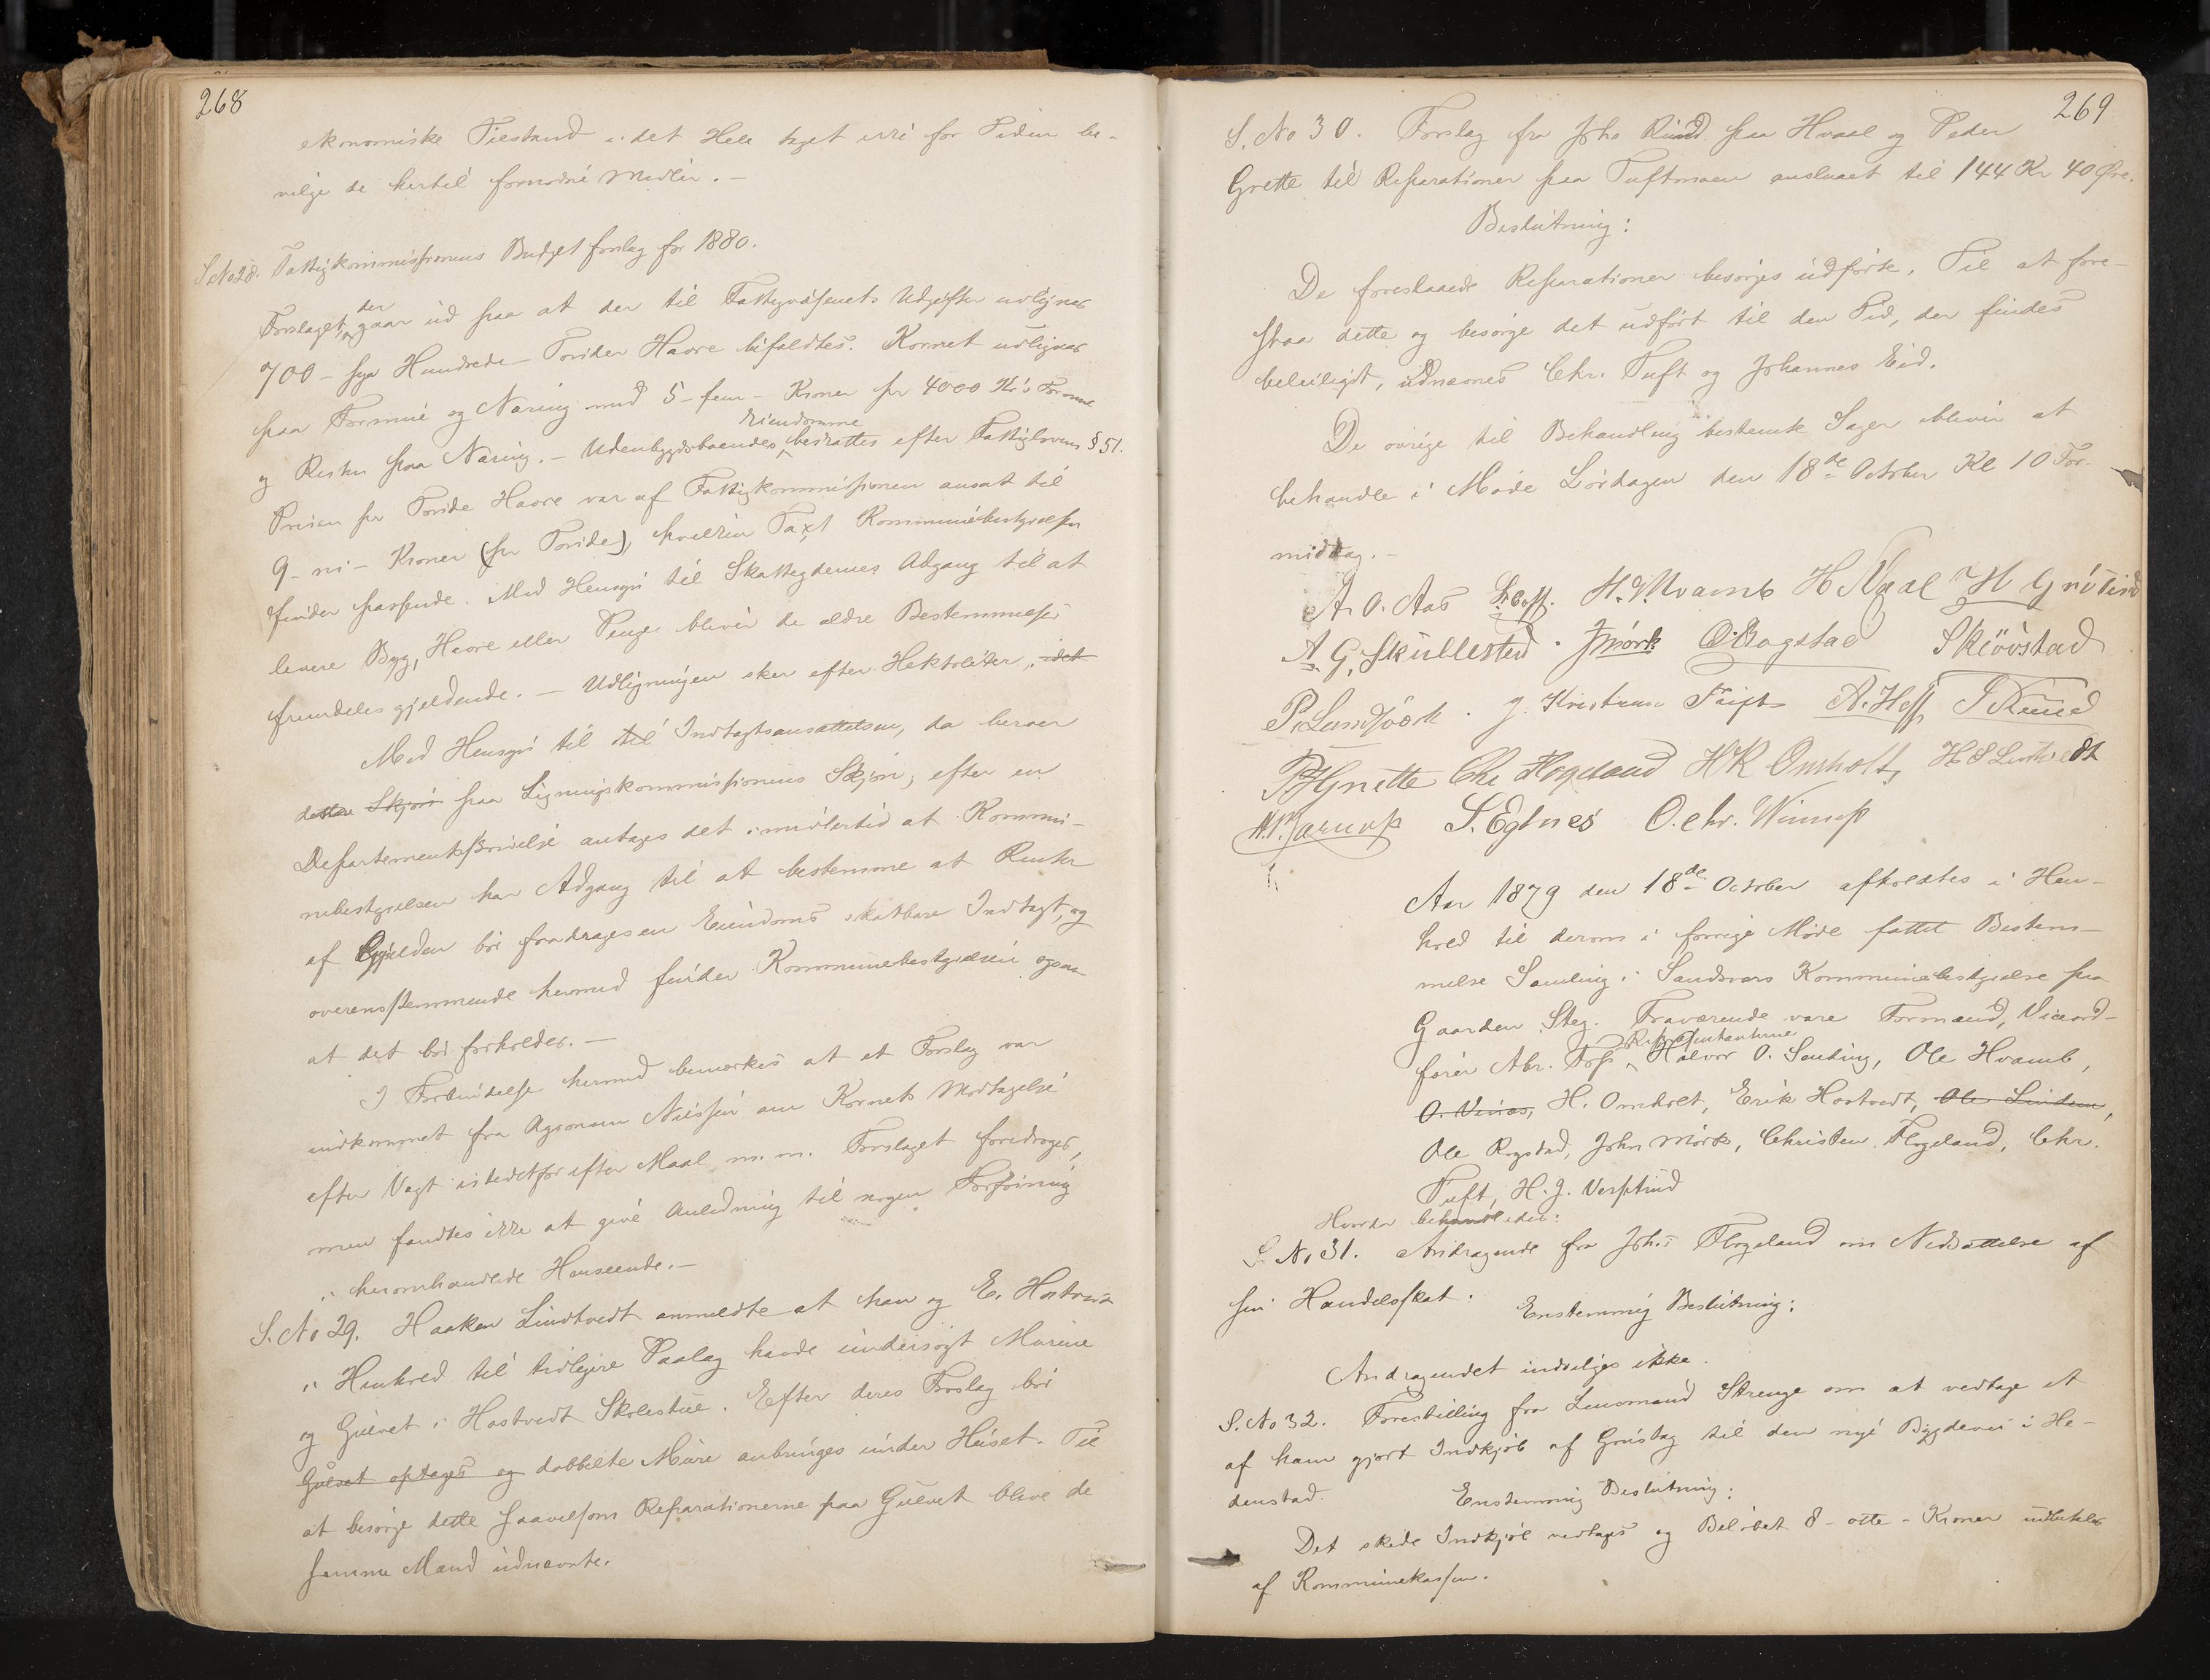 268
ekonomiske Tilstand i det Hele taget ikke for Tiden be-
vilge de hertil fornødne Midler. –
S. No 28. Fattigkommissionens Budgetforslag for 1880.
der
Forslaget, gaar ud paa at der til Fattigvæsenets Udgifter udlignes
700 – syv Hundrede – Tønder Havre bifaldtes. Kornet udlignes
paa Formue og Næring med 5 – fem – Kroner pr 4000 Kr's Formue
Eiendomme
og Resten paa Næring. – Udenbygdsboendes beskattes efter Fattiglovens § 51.
Prisen pr Tønde Havre var af Fattigkommissionen ansat til
9 – ni – Kroner (pr Tønde), hvilken Taxt Kommunebestyrelsen
finder passende. Med Hensyn til Skatteydernes Adgang til at
levere Byg, Havre eller Penge bliver de ældre Bestemmelser
fremdeles gjeldende. – Udligningen sker efter Hektoliter, idet
Med Hensyn til til Indtægtsansættelsen, da beroer
denne Skjøn paa Ligningskommissionens Skjøn; efter en
Departementsskrivelse antages det imidlertid at Kommu-
nebestyrelsen har Adgang til at bestemme at Renter
af Gjelden bør fradrages en Eiendoms skatbare Indtægt, og
overensstemmende hermed finder Kommunebestyrelsen ogsaa
at det bør forholdes. –
I Forbindelse hermed bemærkes at et Forslag var
indkommet fra Agronom Nilssen om Kornets Modtagelse
efter Vægt istedetfor efter Maal m. m. Forslaget foredroges,
men fandtes ikke at give Anledning til nogen Forføining
i heromhandlede Henseende. –
S. No 29. Haaken Lindtvedt anmeldte at han og E. Hostvedt
i Henhold til tidligere Paalæg havde undersøgt Murene
og Gulvet i Hostvedt Skolestue. Efter deres Forslag bør
Gulvet optages og dobbelte Mure anbringes under Huset. Til
at besørge dette saavelsom Reparationerne paa Gulvet blive de
samme Mænd udnævnte.
269
S. No 30. Forslag fra Johs Ruud paa Hvaal og Peder
Grette til Reparationer paa Tuftmoen anslaaet til 144 Kr 40 Øre.
Beslutning:
De foreslaaede Reparationer besørges udførte. Til at fore-
staa dette og besørge det udført til den Tid, der findes
beleiligst, udnævnes Chr. Tuft og Johannes Eid.
De øvrige til Behandling bestemte Sager bliver at
behandle i Møde Lørdagen den 18de October Kl 10 For-
middag. –
A. O. Aas H. Hvamb H Naal
A. G. Skullestad. J Mørk O Rogstad Skjövstad
P. Landsverk. J. Kristian Tuft A. Foss J Ruud
P Grette Chr Flogeland HK Omholt, H S Lintvedt
H. P. Jarnæss S. Egtnes O. Chr. Winness
Aar 1879 den 18de October afholdtes i Hen-
hold til derom i forrige Møde fattet Bestem-
melse Samling i Sandsvers Kommunebestyrelse paa
Gaarden Steg. Fraværende vare Formand, Viceord-
Repræsentanterne
fører Abr. Foss, Halvor O. Senting, Ole Hvamb,
O. Vinæs, H. Omholt, Erik Hostvedt, Ole Lindem,
Ole Rogstad, John Mørk, Christen Flogeland, Chr.
Tuft, H. J. Verpstind
Hvorda behandledes:
S. No 31. Andragende fra Johs Flogeland om Nedsættelse af
sin Handelsskat:
Enstemmig Beslutning:
Andragendet indvilges ikke.
S. No 32. Forestilling fra Lensmand Strenge om at vedtage et
af ham gjort Indkjøb af Grustag til den nye Bygdevei i He-
denstad.
Enstemmig Beslutning:
Det skede Indkjøb vedtages og Beløbet 8 – otte – Kroner udbetales
af Kommunekassen.